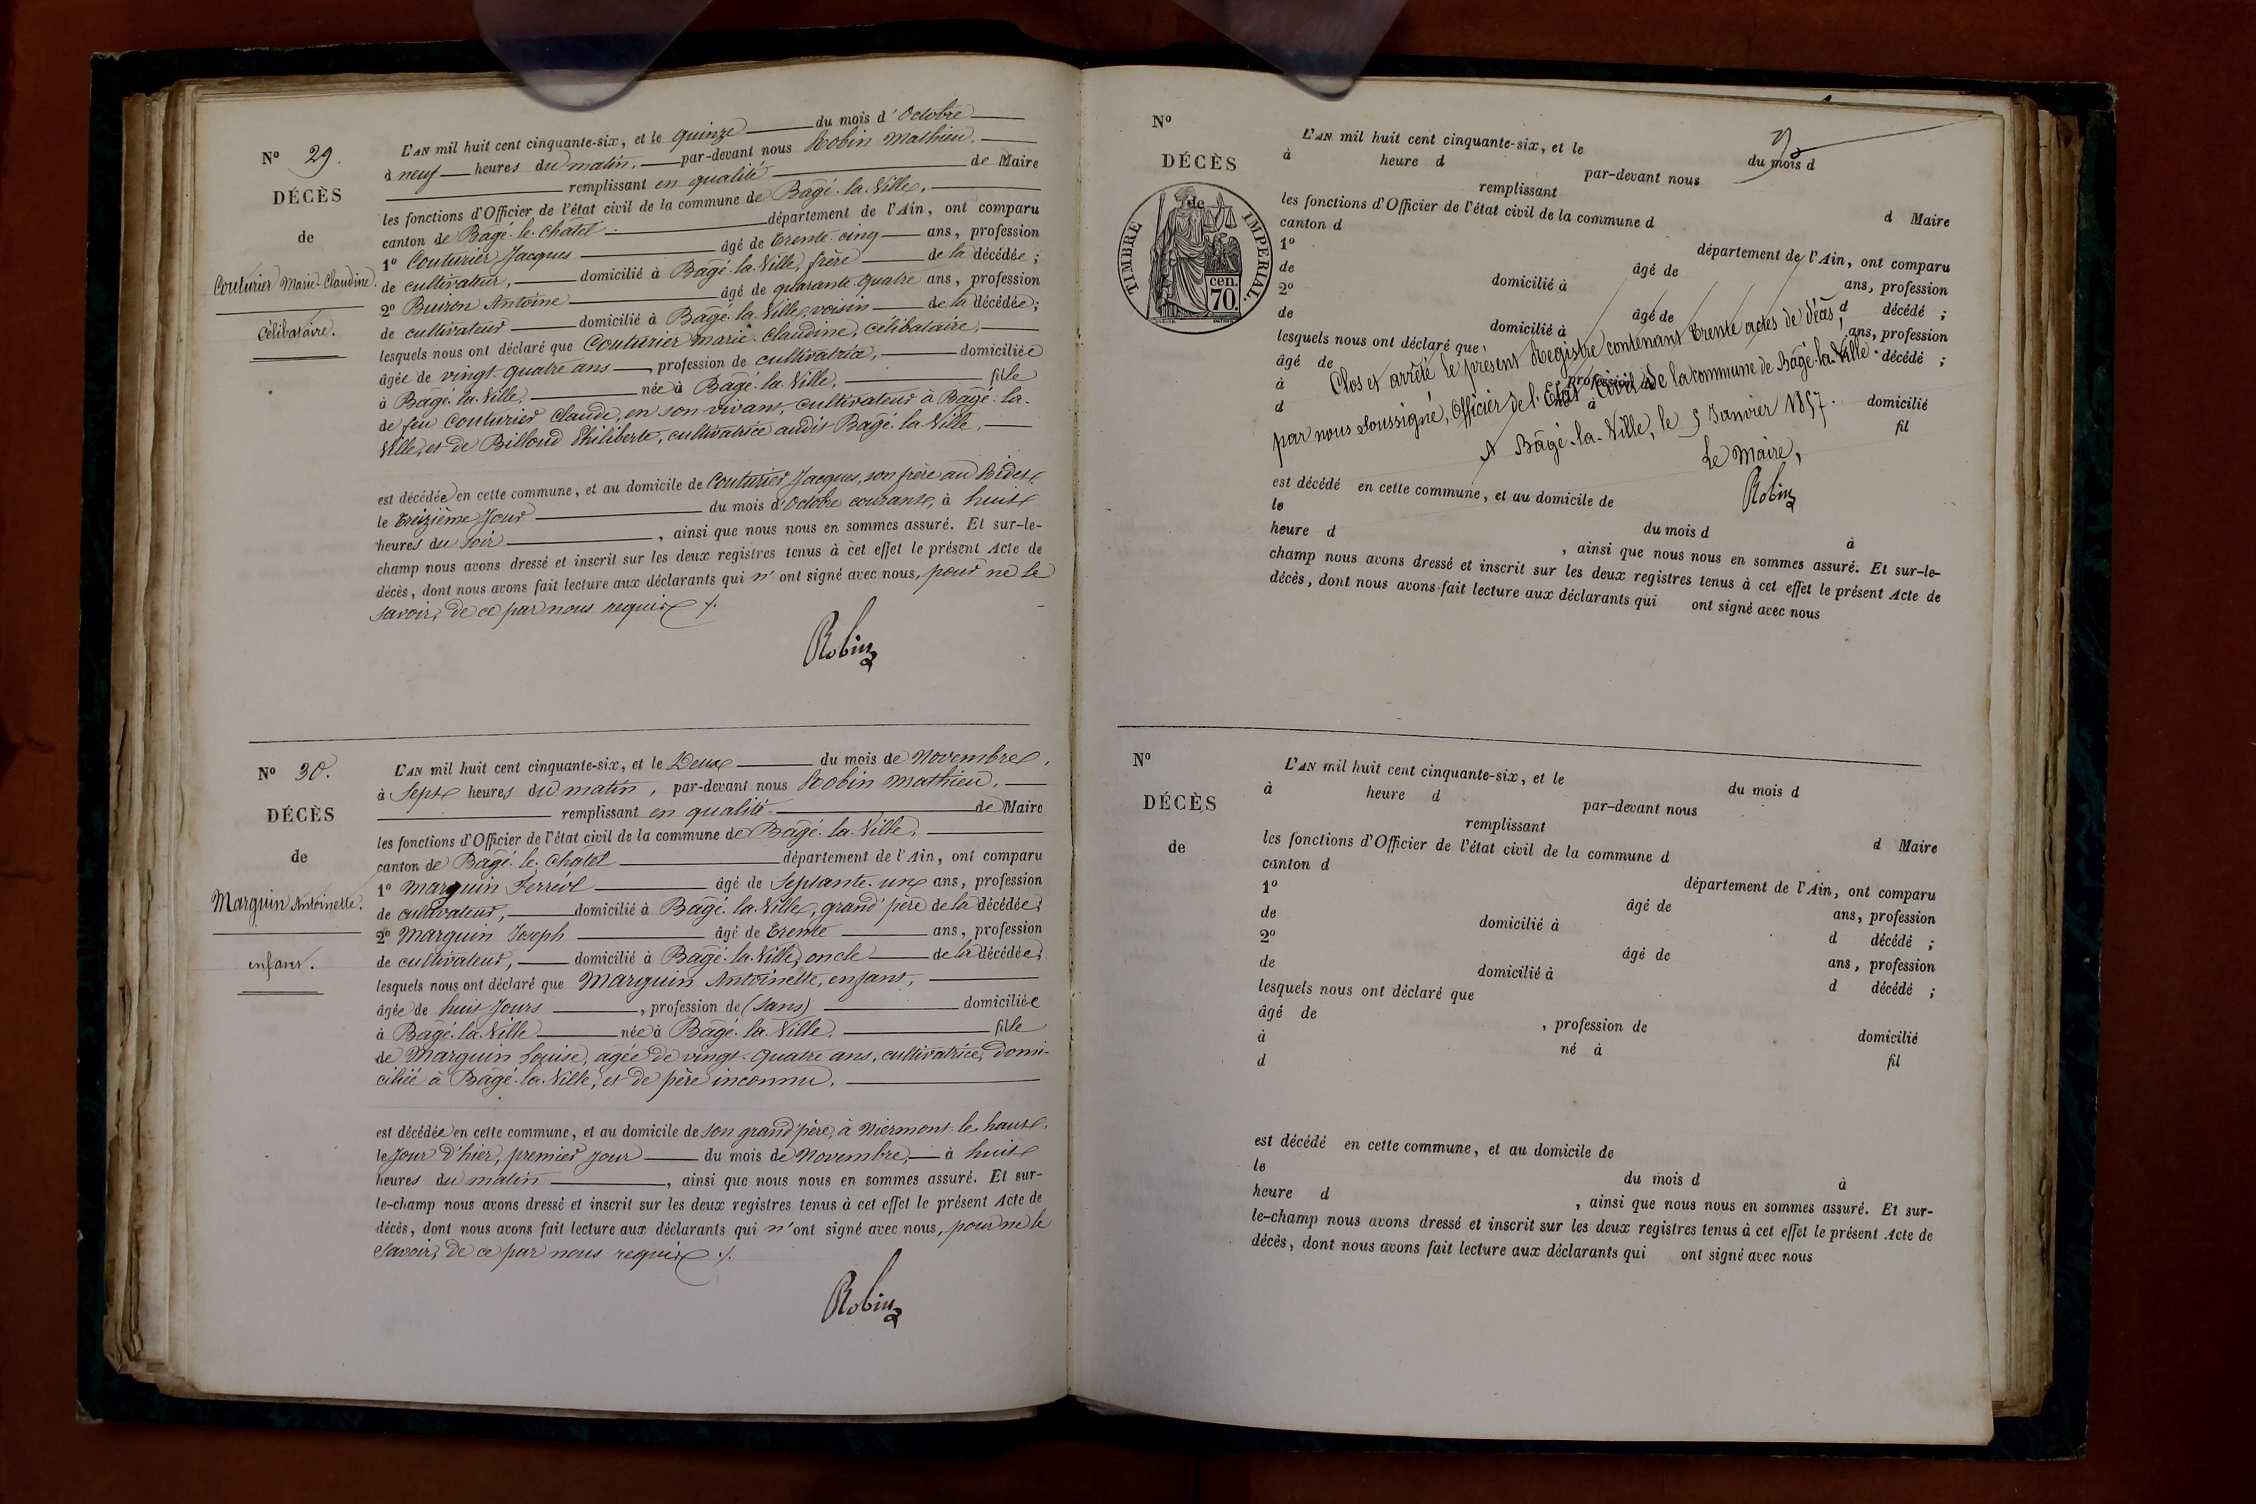 N° 29.
DÉCÈS
de
Couturier Marie-Claudine.
Célibataire.
L'AN mil huit cent cinquante-six, et le quinze du mois d'Octobre
à neuf heures du matin, par-devant nous Robin Mathieu,
remplissant en qualité de Maire
les fonctions d'Officier de l'état civil de la commune de Bâgé-la-Ville,
canton de Bâgé-le-Chatel département de l'Ain, ont comparu
1° Couturier Jacques âgé de trente-cinq ans, profession
de cultivateur, domicilié à Bâgé-la-Ville, frère de la décédée;
2° Buiron Antoine âgé de quarante-quatre ans, profession
de cultivateur domicilié à Bâgé-la-Ville, voisin de la décédée;
lesquels nous ont déclaré que Couturier Marie-Claudine, Célibataire,
âgée de vingt-quatre ans, profession de cultivatrice, domiciliée
à Bâgé-la-Ville, née à Bâgé-la-Ville, fille
de feu Couturier Claude, en son vivant, cultivateur à Bâgé-la-
Ville, et de Billoud Philiberte, cultivatrice audit Bâgé-la-Ville,
est décédée en cette commune, et au domicile de Couturier Jacques, son frère au
le treizième jour du mois d'Octobre courant, à huit
heures du soir, ainsi que nous nous en sommes assuré. Et sur-le-
champ nous avons dressé et inscrit sur les deux registres tenus à cet effet le présent Acte de
décès, dont nous avons fait lecture aux déclarants qui n'ont signé avec nous, pour ne le
savoir, de ce par nous requis ./.
Robin
N° 30.
DÉCÈS
de
Marguin Antoinette.
enfant.
L'AN mil huit cent cinquante-six, et le Deux du mois de Novembre,
à Sept heures du matin, par-devant nous Robin Mathieu,
remplissant en qualité de Maire
les fonctions d'Officier de l'état civil de la commune de Bâgé-la-Ville,
canton de Bâgé-le-Chatel département de l'Ain, ont comparu
1° Marguin Ferréol âgé de Septante-un ans, profession
de cultivateur, domicilié à Bâgé-la-Ville, grand'père de la décédée;
2° Marguin Joseph âgé de trente ans, profession
de cultivateur, domicilié à Bâgé-la-Ville, oncle de la décédée;
lesquels nous ont déclaré que Marguin Antoinette, enfant,
âgée de huit jours, profession de (sans) domiciliée
à Bâgé-la-Ville née à Bâgé-la-Ville, fille
de Marguin Louise, âgée de vingt-quatre ans, cultivatrice, domi-
ciliée à Bâgé-la-Ville, et de père inconnu.
est décédée en cette commune, et au domicile de son grand'père, à Niermont-le-haut
le jour d'hier, premier jour du mois de Novembre, à huit
heures du matin, ainsi que nous nous en sommes assuré. Et sur-
le-champ nous avons dressé et inscrit sur les deux registres tenus à cet effet le présent Acte de
décès, dont nous avons fait lecture aux déclarants qui n'ont signé avec nous, pour ne le
savoir, de ce par nous requis ./.
Robin
N°
DÉCÈS
de
TIMBRE IMPERIAL.
cen.
70.
L'AN mil huit cent cinquante-six, et le du mois d
à heure d par-devant nous
remplissant d Maire
les fonctions d'Officier de l'état civil de la commune d
canton d département de l'Ain, ont comparu
1° âgé de ans, profession
de domicilié à d décédé ;
2° âgé de ans, profession
de domicilié à décédé ;
lesquels nous ont déclaré que
âgé de profession de domicilié
à né à fil
d
Clos et arrêté le présent Registre contenant trente actes de décès,
par nous soussigné, Officier de l'Etat Civil de la commune de Bâgé-la-Ville.
A Bâgé-la-Ville, le 5 Janvier 1857.
Le Maire,
Robin
est décédé en cette commune, et au domicile de
le du mois d à
heure d , ainsi que nous nous en sommes assuré. Et sur-le-
champ nous avons dressé et inscrit sur les deux registres tenus à cet effet le présent Acte de
décès, dont nous avons fait lecture aux déclarants qui ont signé avec nous
N°
DÉCÈS
de
L'AN mil huit cent cinquante-six, et le du mois d
à heure d par-devant nous
remplissant d Maire
les fonctions d'Officier de l'état civil de la commune d
canton d département de l'Ain, ont comparu
1° âgé de ans, profession
de domicilié à d décédé ;
2° âgé de ans, profession
de domicilié à d décédé ;
lesquels nous ont déclaré que
âgé de , profession de domicilié
à né à fil
d
est décédé en cette commune, et au domicile de
le du mois d à
heure d , ainsi que nous nous en sommes assuré. Et sur-
le-champ nous avons dressé et inscrit sur les deux registres tenus à cet effet le présent Acte de
décès, dont nous avons fait lecture aux déclarants qui ont signé avec nous